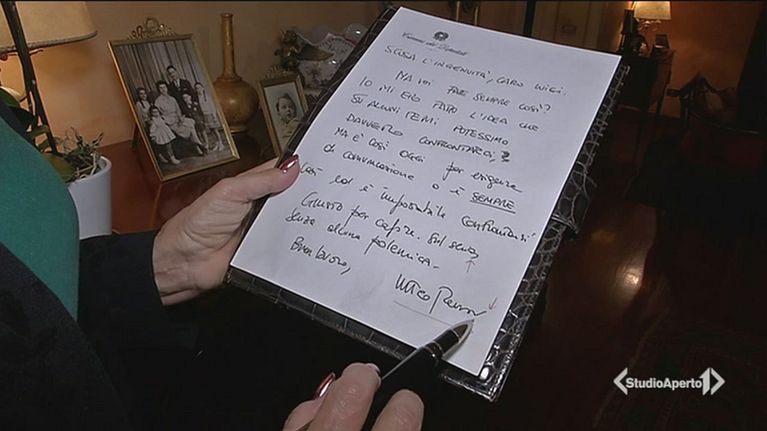 Camera dei Deputati
SCUSA L'INGENUITÀ, CARO LUIGI.
MA VOI FATE SEMPRE COSÌ?
IO MI ERO FATTO L'IDEA CHE
SU ALCUNI TEMI POTESSIMO
DAVVERO CONFRONTARCI,
MA È COSÌ OGGI per esigenze
di comunicazione o è SEMPRE
così ed è impossibile confrontarsi
Giusto per capire. Sul serio,
senza alcuna polemica.
Buon lavoro,
StudioAperto1